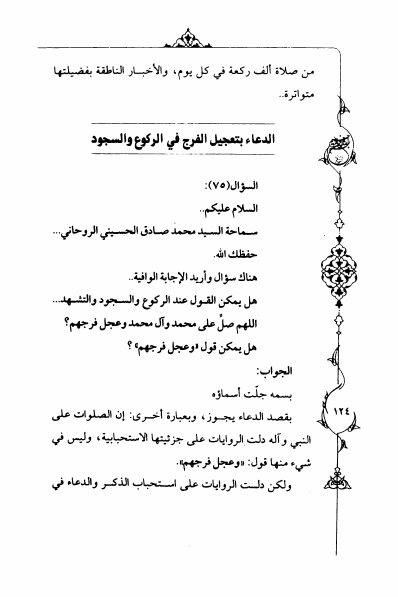 من صلاة ألف ركعة في كل يوم، والأخبار الناطقة بفضيلتها
متواترة..
الدعاء بتعجيل الفرج في الركوع والسجود
السؤال(٧٥):
السلام عليكم..
سماحة السيد محمد صادق الحسيني الروحاني...
حفظك الله.
هناك سؤال وأريد الإجابة الوافية..
هل يمكن القول عند الركوع والسجود والتشهد...
اللهم صلِّ على محمد وآل محمد وعجل فرجهم؟
هل يمكن قول «وعجل فرجهم»؟
الجواب:
بسمه جلّت أسماؤه
بقصد الدعاء يجوز، وبعبارة أخرى: إن الصلوات على
النبي وآله دلت الروايات على جزئيتها الاستحبابية، وليس في
شيء منها قول: «وعجل فرجهم».
ولكن دلت الروايات على استحباب الذكر والدعاء في
١٢٤